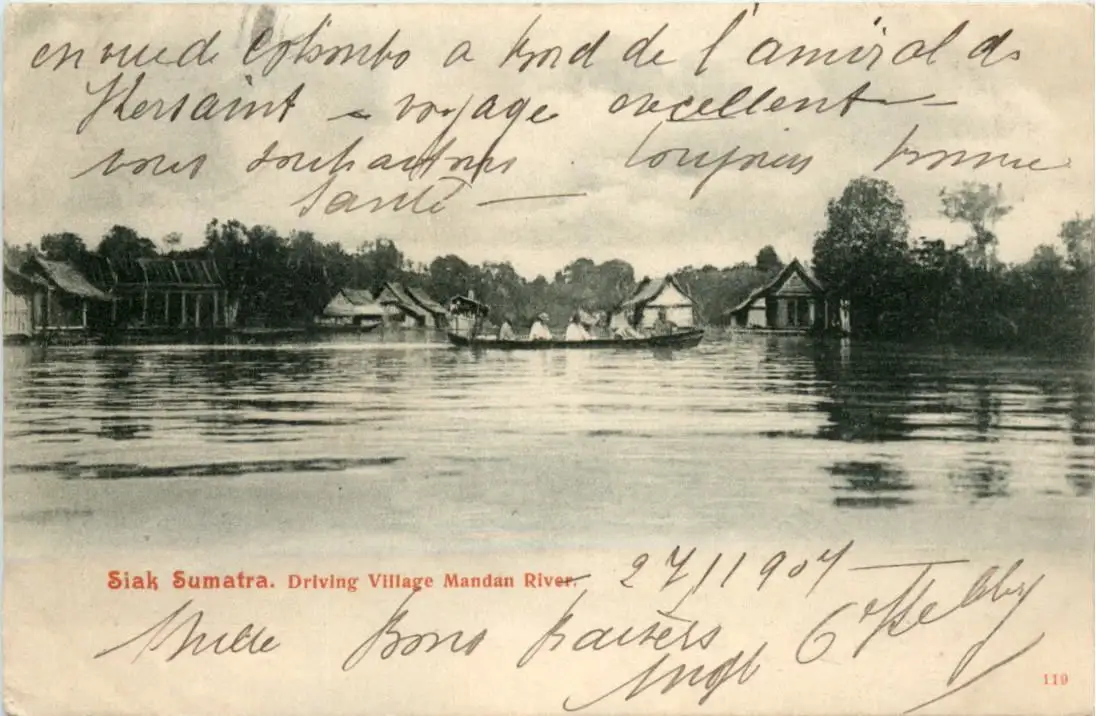 en vue de Colombo a bord de l'amiral de
Kersaint - voyage excellent -
vous souhaitons toujours bonne
Santé -
Siak Sumatra. Driving Village Mandan River.
27/1 1907 -
Mille Bons Baisers
119